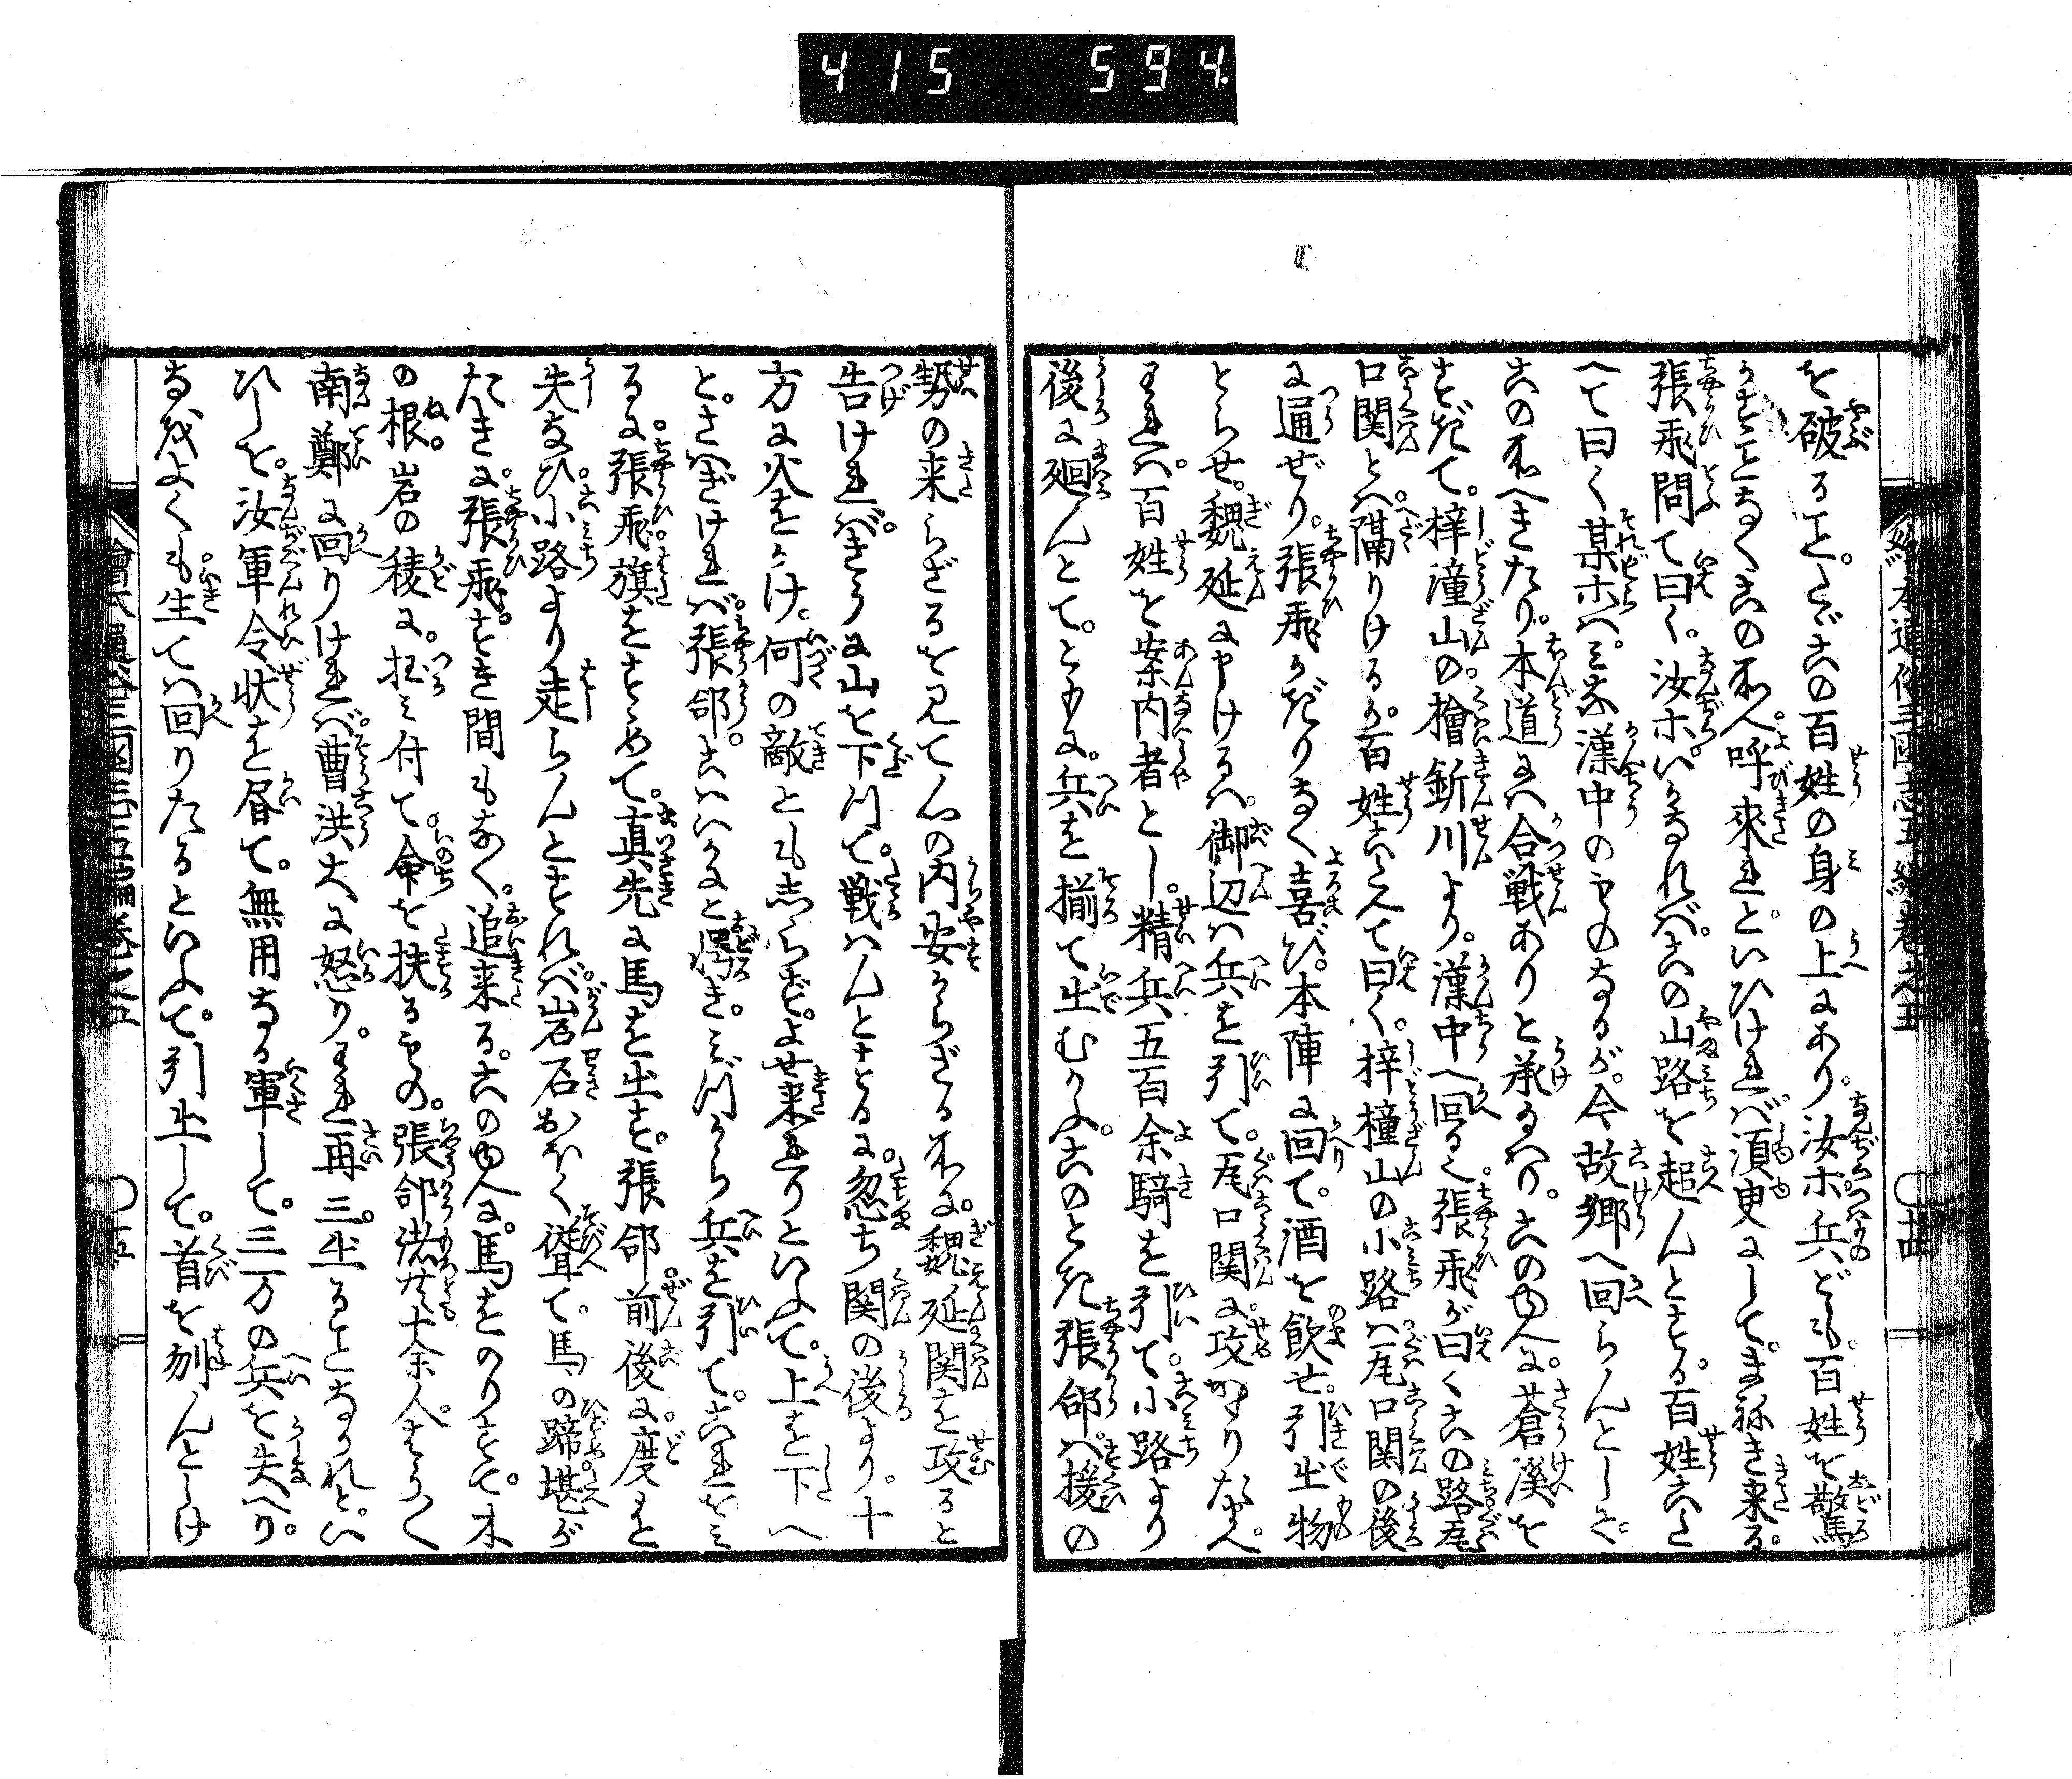 415 594
を破ること。たゞ此の百姓の身の上にあり。汝ホ兵ども。百姓を驚
かすことなく此の所へ呼來れ。といひければ。須臾にして。まねき来る。
張飛問て曰く。汝ホ。いかなれば。此の山路を超んとする。百姓こた
へて曰く某ホハ。みな漢中のものなるが。今故郷へ回らんとしさ。
此の所へきたり。本道にハ合戦ありと承るへり。此のゆへに。蒼溪を
すぎて。梓潼山の檜釿川より。漢中へ回る也。張飛が曰く此の路瓦
口関とハ。隔りけるか。百姓こたえて曰く。梓橦山の小路ハ瓦口関の後
に通ぜり。張飛かぎりなく喜び。本陣に回て。酒を飲せ。引出物
とらせ。魏延に申けるハ。御辺ハ兵を引て。瓦口関に攻かゝりたまへ。
われハ。百姓を案内者とし。精兵五百余騎を引て。小路より
後に廻んとて。ともに。兵を揃て出むかふ。此のとき張郃ハ。援の
勢の来らざるを見て心の内安からざる所に。魏延関を攻ると
告ければ。きうに山を下つて。戦ハんとするに。忽ち関の後より。十
方に火をかけ。何の敵とも志らず。よせ来れりといふて。上を下へ
と。さハぎければ。張郃。こハいかにと愕き。みづから兵を引て。これをみ
るに。張飛。旗をすゝめて。真先に馬を出す。張郃。前後に。度を
失なひ。小路より走らんとすれば。岩石おほく聳て。馬の蹄堪が
たきに。張飛。すき間もなく。追来る。此のゆへに。馬をのりすて。木
の根。岩の稜に。拄み付て。命を扶るもの。張郃諸共十余人。やうやく
南鄭に回りければ。曹洪大に怒り。われ再三。出ることなかれと。い
ひしを。汝軍令状を昏て。無用なる軍して。三万の兵を失へり。
なんぞよくも生ては回りたるといふて。引出して。首を刎んとしけ
繪本通俗三國志五編卷之五
十四
繪本通俗三國志五編卷之五
十五